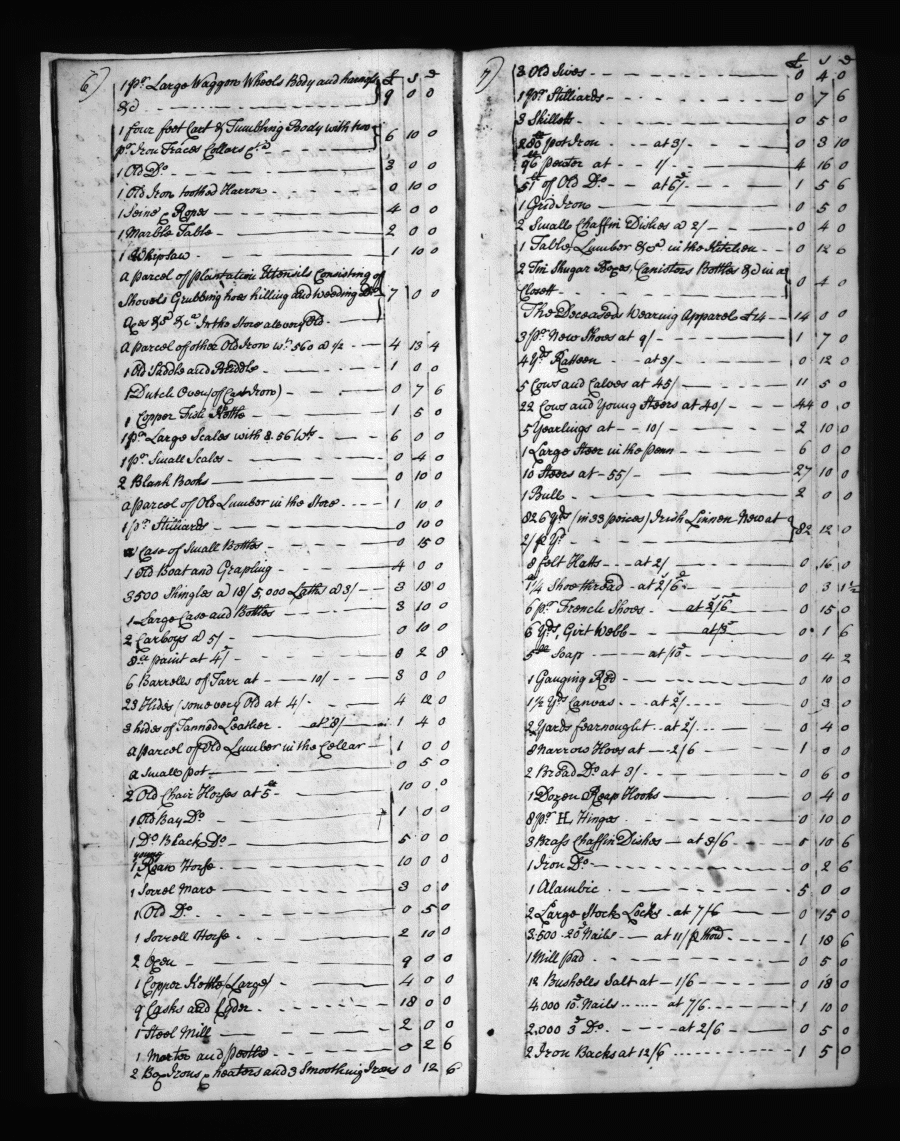 6)
£ s d
1 pr. Large Waggon Wheels Body and harness
&c - - - 9 0 0
1 four foot Cart & Tumbling Body with two
pr. Iron Traces Collars &ca. 6 10 0
1 Old Do. - - - 3 0 0
1 Old Iron toothed Harrow - - - 0 10 0
1 Seine & Ropes - - - 4 0 0
1 Marble Table - - - 2 0 0
1 Whipsaw - - - 1 10 0
a parcel of plantation Utensils Consisting of
Shovels Grubbing hoes hilling and weeding Do. 7 0 0
Axes &c. &ca. In the Store all very Old - - -
a parcel of other Old Iron wt. 560 @ ½ - - 4 13 4
1 Old Saddle and Briddle - - - 1 0 0
1 Dutch Oven (of Cast Iron) - 0 7 6
1 Copper Fish Kettle - - - 1 5 0
1 pr. Large Scales with 8. 56 Wts. - - - 6 0 0
1 pr. Small Scales - - - 0 4 0
2 Blank Books - - - 0 10 0
a parcel of Old Lumber in the Store - - - 1 10 0
1 pr. Stilliards - - - 0 10 0
a Case of Small Bottles - - - 0 15 0
1 Old Boat and Grapling - - - 4 0 0
3500 Shingles @ 18/ 5,000 Laths @ 3/ - - 3 18 0
1 Large Case and Bottles 3 10 0
2 Carboys @ 5/ - - - 0 10 0
8 paint at 4d - - - 8 2 8
6 Barrells of Tarr at - 10/ - 3 0 0
23 Hides (some very Old at 4/ - - 4 12 0
3 hides of Tanned Leather - at 8/ - 1 4 0
a parcel of Old Lumber in the Cellar - 1 0 0
a Small pot - - - 0 5 0
2 Old Chair Horses at 5 - - - 10 0 0
1 Old Bay Do. - - - 1 0 0
1 Do. Black Do. - - - 5 0 0
young
1 Roan Horse - - - 10 0 0
1 Sorrel Mare - - - 3 0 0
1 Old Do. - - - 0 5 0
1 Sorrell Horse - - - 2 10 0
2 Oxen - - - 9 0 0
1 Copper Kettle (Large) - - - 4 0 0
9 Casks and Cyder - - - 18 0 0
1 Steel Mill - - - 2 0 0
1 Morter and pestle - - - 0 2 6
2 Box Irons, heaters and 3 Smoothing Irons 0 12 6
7)
£ s d
3 Old Sives - - - 0 4 0
1 pr. Stilliards - - - 0 7 6
3 Skilletts - - - 0 5 0
pot Iron - - - at 3/ - - - 0 3 10
96 pewter at - - 1/ - - - 4 16 0
51 of Old Do. - - at 6d - - - 1 5 6
1 Grid Iron - - - 0 5 0
2 Small Chaffin Dishes @ 2/ - - - 0 4 0
1 Table, Lumber &ca. in the Kitchen - - 0 12 6
2 Tin Shugar Boxes, Canisters Bottles &c in a
Closett - - - 0 4 0
The Deceaseds Wearing Apparel £14 - - 14 0 0
3 pr. New Shoes at 9/ - - - 1 7 0
4 Yds Ratteen - - - at 3/ - - - 0 12 0
5 Cows and Calves at 45/ - - - 11 5 0
22 Cows and Young Steers at 40/ - 44 0 0
5 Yearlings at - - 10/ - - - 2 10 0
1 Large Steer in the penn - - - 6 0 0
10 Steers at - 55/ - - - 27 10 0
1 Bull - - - 2 0 0
826 Yds (in 33 peices) Irish Linnen New at
2/ p Yd. - - - 82 12 0
8 felt Hatts - - - at 2/ - - - 0 16 0
1¼ Shoe thread - at 2/6 - - - 0 3 1½
6 pr. French Shoes - - - at 2/6 - - - 0 15 0
6 Yds, Girt Webb - - - at 3d - - - 0 1 6
5 Soap - - - at /10d - - - 0 4 2
1 Gauging Rod - - - 0 10 0
1½ Yds Canvas - - - at 2/ - - - 0 3 0
2 Yards fearnought - - at 2/ - - - 0 4 0
8 Narrow Hoes at - 2/6 - - - 1 0 0
2 Broad Do. at 3/ - - - 0 6 0
1 Dozen Reap Hooks - - - 0 4 0
8 pr. H, Hinges - - - 0 10 0
3 Brass Chaffin Dishes - at 3/6 - - - 10 6
1 Iron Do. - - - 0 2 6
1 Alambic - - - 5 0 0
2 Large Stock Locks - at 7/6 - - - 0 15 0
3.500 20d Nails - - at 11/ p thous. - - - 1 18 6
1 Mill pad - - - 0 5 0
12 Bushells Salt at - 1/6 - - - 0 18 0
4,000 10d Nails - - - at 7/6 - - - 1 10 0
2,000 3d Do. - - - at 2/6 - - - 0 5 0
2 Iron Backs at 12/6 - - - 1 5 0